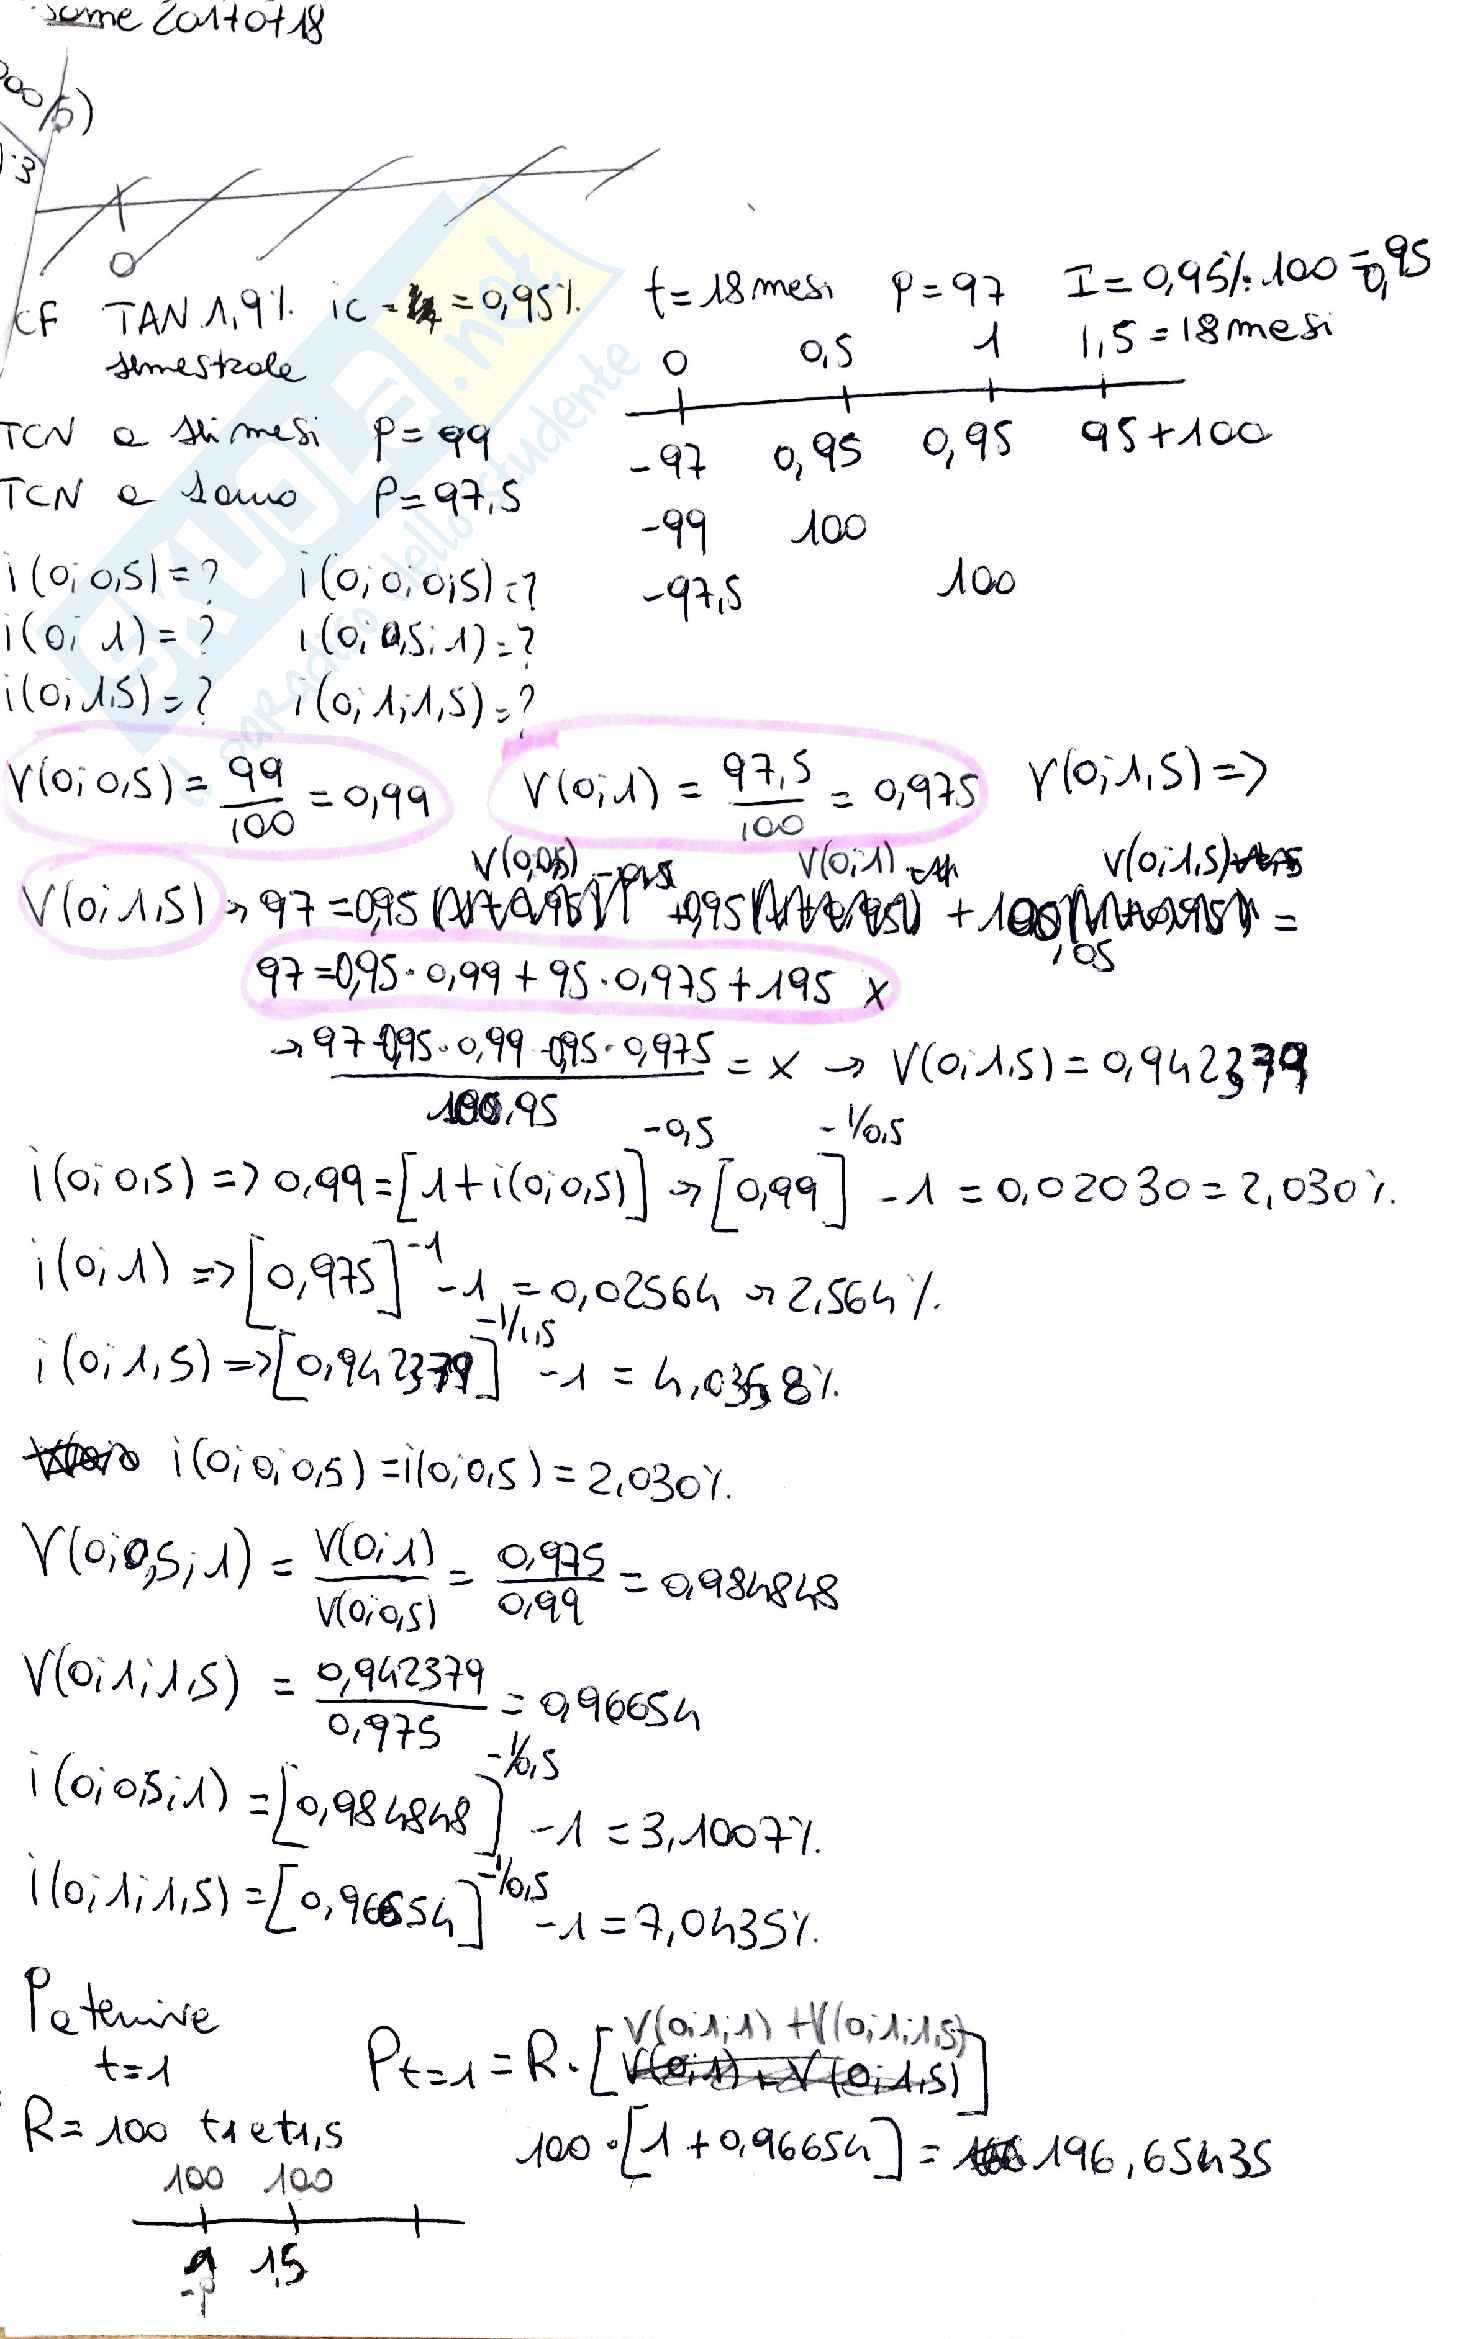 same 20170718
000/5)
CF TAN 1,9% ic = = 0,95% t=18 mesi P=97 I=0,95%·100=0,95
semestrale
0 0,5 1 1,5=18 mesi
-97 0,95 0,95 95+100
TCN a sei mesi P=99
-99 100
TCN a 1 anno P=97,5
-97,5 100
i(0;0,5)=? i(0;0;0,5)=?
i(0;1)=? i(0;0,5;1)=?
i(0;1,5)=? i(0;1;1,5)=?
V(0;0,5)=99/100=0,99 V(0;1)=97,5/100=0,975 V(0;1,5)=>
V(0;0,5) V(0;1) V(0;1,5)
V(0;1,5) → 97=0,95 +0,95 +100,95 =
97=0,95·0,99+95·0,975+195 x
→ 97-0,95·0,99-0,95·0,975/100,95 = x → V(0;1,5)=0,942379
i(0;0,5)=>0,99=[1+i(0;0,5)]^-0,5 → [0,99]^-1/0,5 -1=0,02030=2,030%.
i(0;1)=>[0,975]^-1 -1=0,02564 → 2,564%.
i(0;1,5)=>[0,942379]^-1/1,5 -1=4,0358%.
i(0;0;0,5)=i(0;0,5)=2,030%.
V(0;0,5;1)=V(0;1)/V(0;0,5)=0,975/0,99=0,984848
V(0;1;1,5)=0,942379/0,975=0,96654
i(0;0,5;1)=[0,984848]^-1/0,5 -1=3,1007%.
i(0;1;1,5)=[0,96654]^-1/0,5 -1=7,0435%.
P a termine
t=1
V(0;1;1)+V(0;1;1,5)
Pt=1=R·[V(0;1)+V(0;1,5)]
R=100 t1 e t1,5
100·[1+0,96654]=196,65435
100 100
1 1,5
-P
SKUOLA.net
il paradiso dello studente